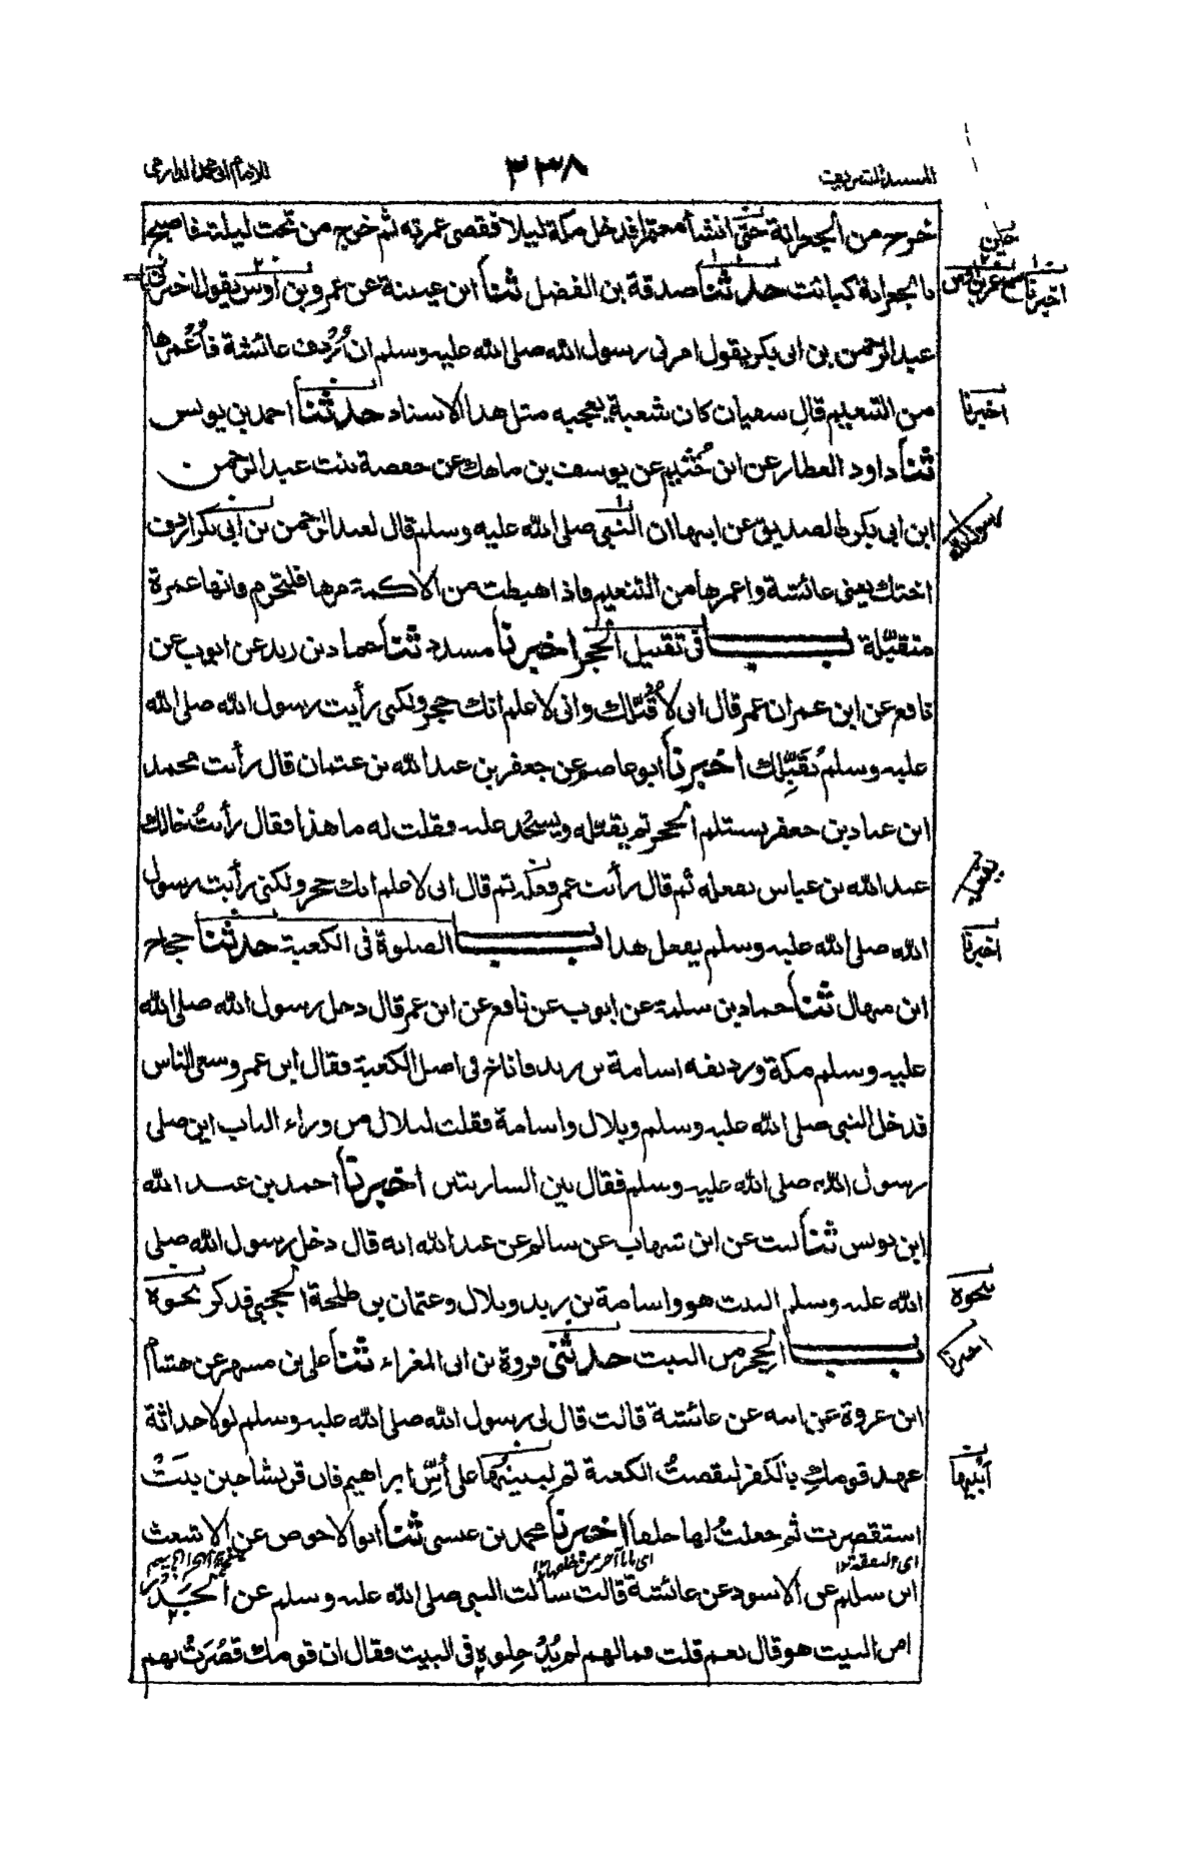 للامام ابي محمد الدارمي
٣٣٨
المسند الشريف
خرج من الجعرانة حتى انشأ معتمرا فدخل مكة ليلا فقضى عمرته ثم خرج من تحت ليلته فاصبح
بالجعرانة كبائت حدثنا صدقة بن الفضل ثنا ابن عيينة عن عمرو بن اوس يقول اخبرني
عبد الرحمن بن ابى بكر يقول امرنى رسول الله صلى الله عليه وسلم ان اُردف عائشة فاُعمرها
من التنعيم قال سفيان كان شعبة يعجبه مثل هذا الاسناد حدثنا احمد بن يونس
ثنا داود العطار عن ابن خُثيم عن يوسف بن ماهك عن حفصة بنت عبد الرحمن
ابن ابى بكر الصديق عن ابيها ان النبي صلى الله عليه وسلم قال لعبد الرحمن بن ابى بكر اردف
اختك يعنى عائشة واعمرها من التنعيم فاذا هبطت من الاكمة مرها فلتحرم فانها عمرة
متقبّلة باب فى تقبيل الحجر اخبرنا مسدد ثنا حماد بن زيد عن ايوب عن
نافع عن ابن عمر ان عمر قال انى لاُقبّلك وانى لاعلم انك حجر ولكنى رأيت رسول الله صلى الله
عليه وسلم يُقَبِّلك اخبرنا ابو عاصم عن جعفر بن عبد الله بن عثمان قال رأيت محمد
ابن عباد بن جعفر يستلم الحجر ثم يقبّله ويسجُد عليه فقلت له ما هذا فقال رأيتُ خالك
عبد الله بن عباس يفعله ثم قال رأيت عمر فعله ثم قال انى لاعلم انك حجر ولكنى رأيت رسول
الله صلى الله عليه وسلم يفعل هذا باب الصلوة فى الكعبة حدثنا حجاج
ابن منهال ثنا حماد بن سلمة عن ايوب عن نافع عن ابن عمر قال دخل رسول الله صلى الله
عليه وسلم مكة ورديفه اسامة بن زيد فاناخ فى اصل الكعبة فقال ابن عمر وسعى الناس
فدخل النبى صلى الله عليه وسلم وبلال واسامة فقلت لبلال من وراء الباب اين صلى
رسول الله صلى الله عليه وسلم فقال بين الساريتين اخبرنا احمد بن عبد الله
ابن يونس ثنا ليث عن ابن شهاب عن سالم عن عبد الله انه قال دخل رسول الله صلى
الله عليه وسلم البيت هو واسامة بن زيد وبلال وعثمان بن طلحة الحجبى فذكر نحوه
باب الحجر من البيت حدثنى فروة بن ابى المغراء ثنا على بن مسهر عن هشام
ابن عروة عن ابيه عن عائشة قالت قال لى رسول الله صلى الله عليه وسلم لولا حداثة
عهد قومكِ بالكفر لنقضتُ الكعبة ثم لبنيتُها على اُسِّ ابراهيم فان قريشا حين بنَتْ
استقصرت ثم جعلتُ لها خلفا اخبرنا محمد بن عيسى ثنا ابو الاحوص عن الاشعث
ابن سليم عن الاسود عن عائشة قالت سألت النبى صلى الله عليه وسلم عن الجَدْر
امن البيت هو قال نعم قلت فما لهم لم يُدْخِلوه فى البيت فقال ان قومك قصُرَتْ بهم
اخبرنا
اخبرنا
اخبرنا
نحوه
اخبرنا
ابنيها